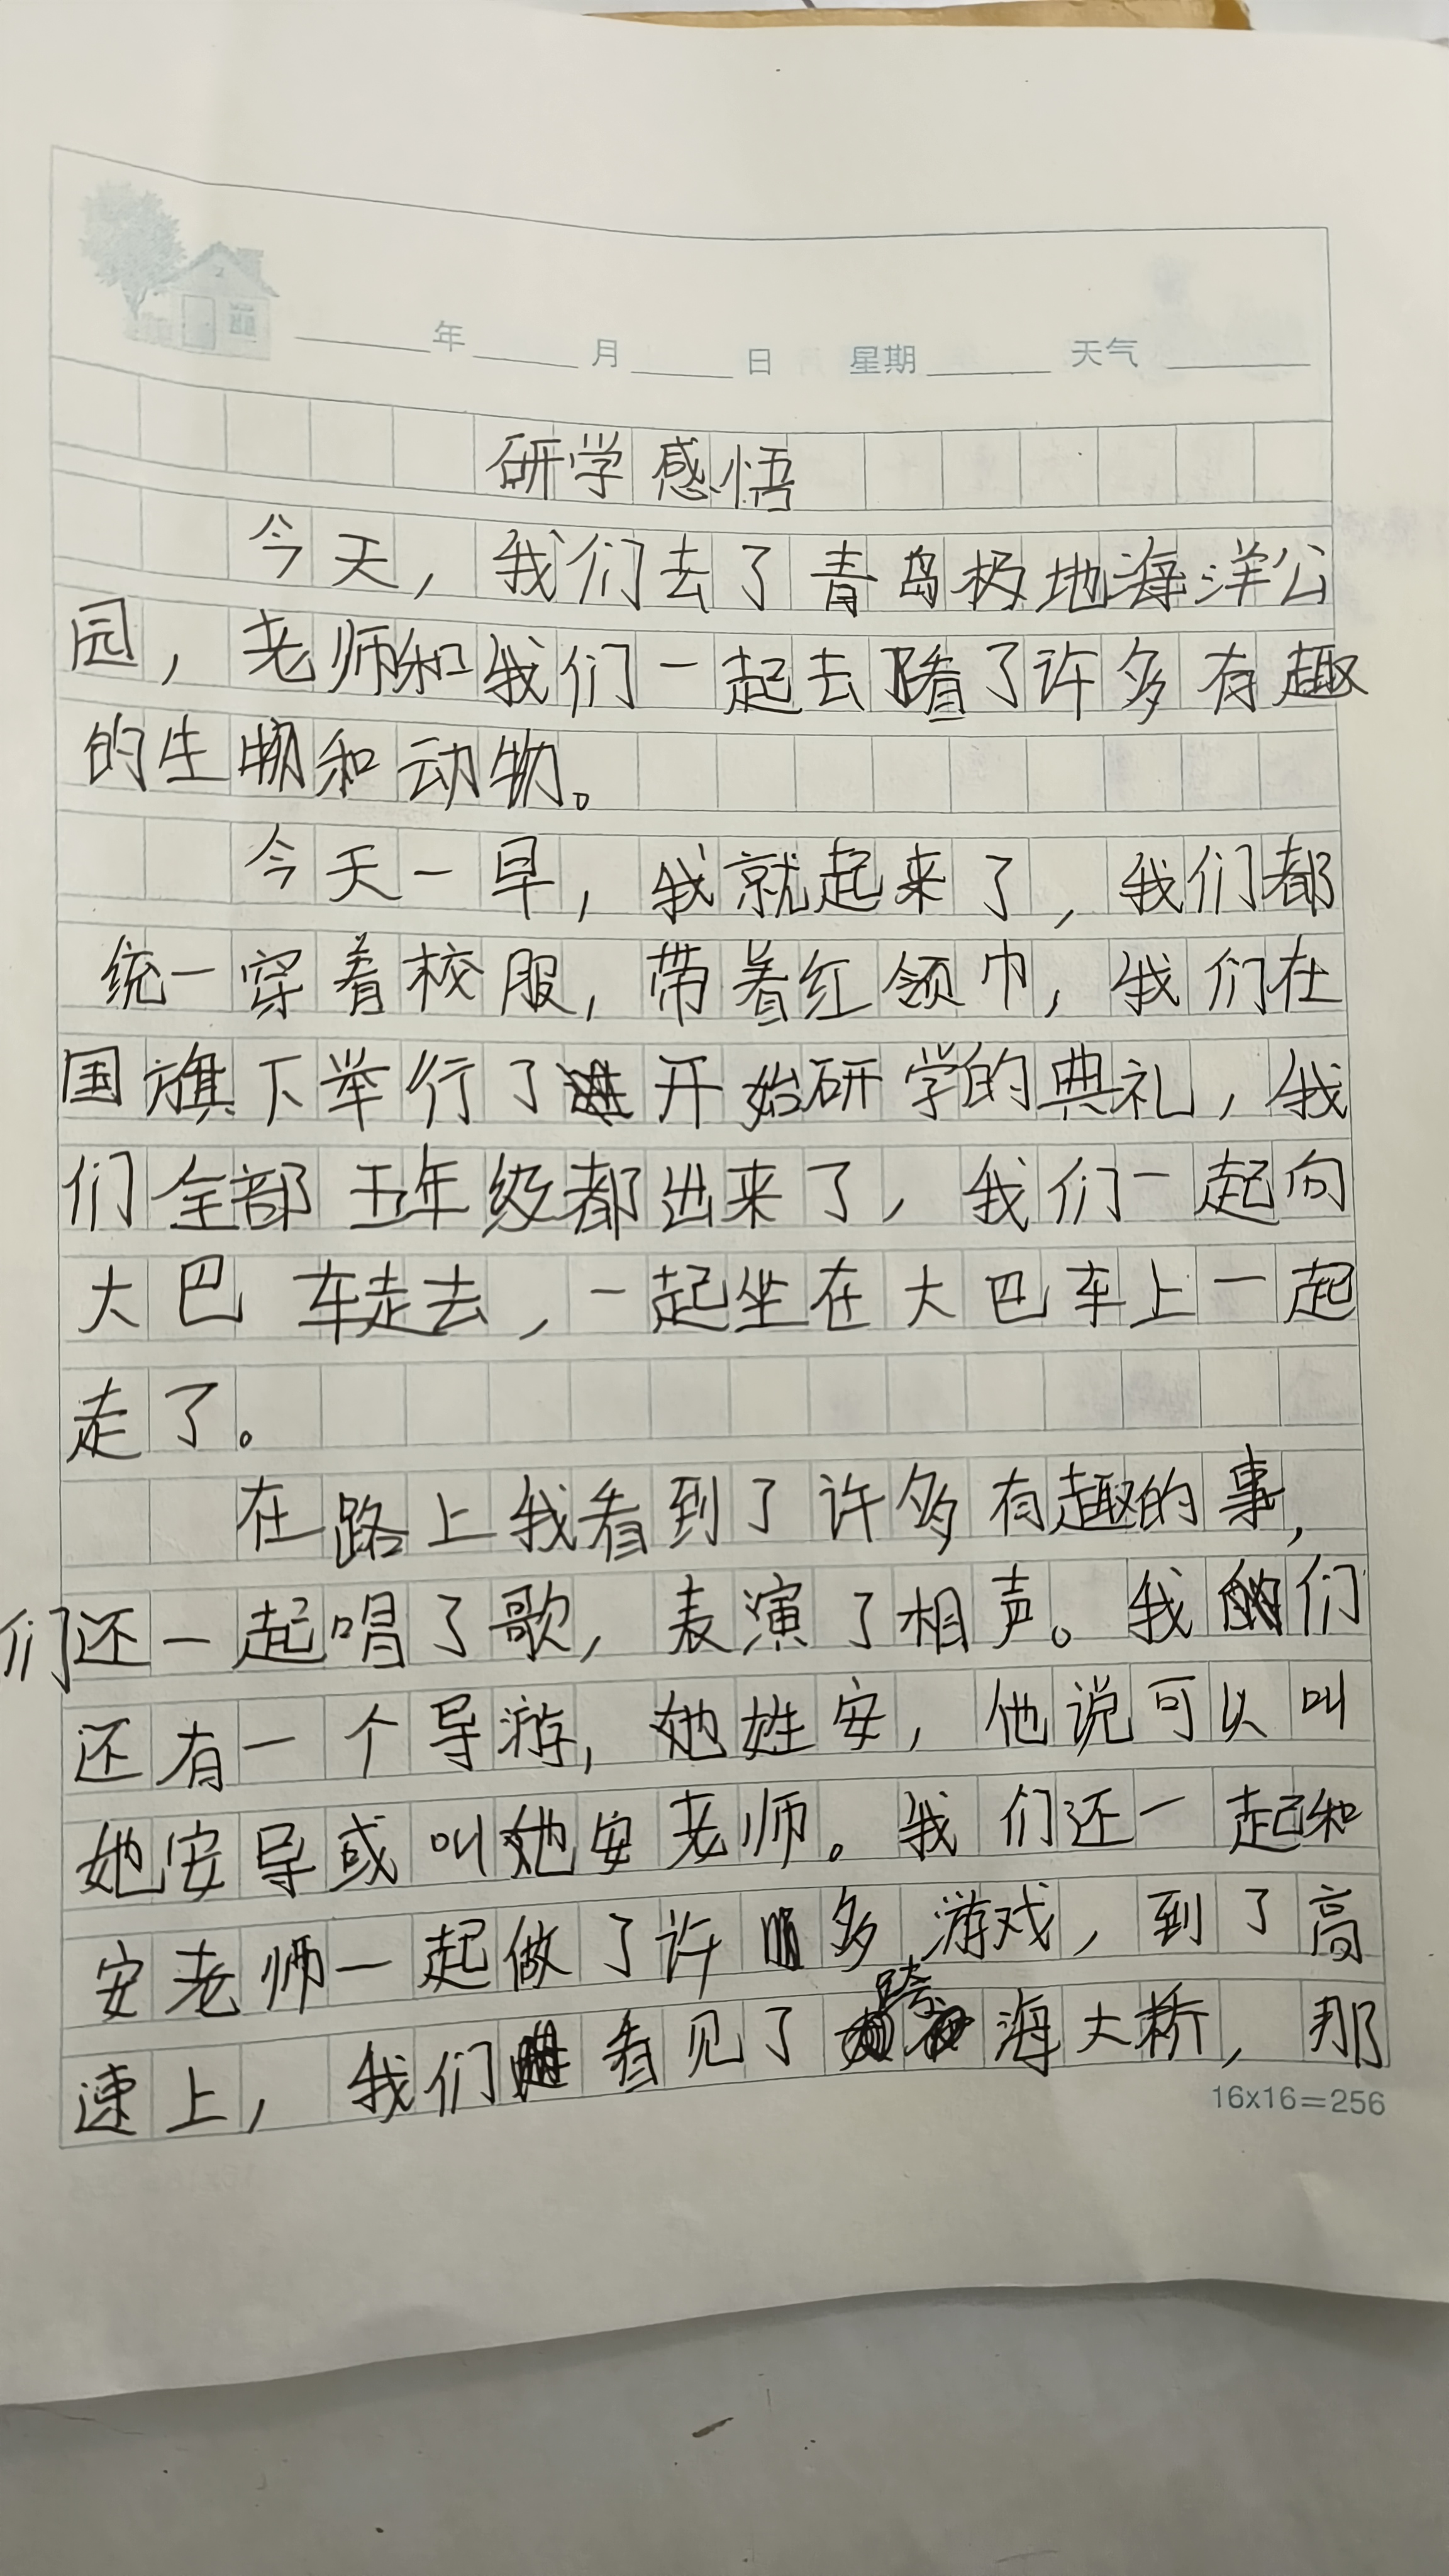 年 月 日 星期 天气
研学感悟
今天，我们去了青岛极地海洋公
园，老师和我们一起去看了许多有趣
的生物和动物。
今天一早，我就起来了，我们都
统一穿着校服，带着红领巾，我们在
国旗下举行了开始研学的典礼，我
们全部五年级都出来了，我们一起向
大巴车走去，一起坐在大巴车上一起
走了。
在路上我看到了许多有趣的事，
们还一起唱了歌，表演了相声。我们
还有一个导游，她姓安，他说可以叫
她安导或叫她安老师。我们还一起和
安老师一起做了许多游戏，到了高
速上，我们看见了跨海大桥，那
16x16=256